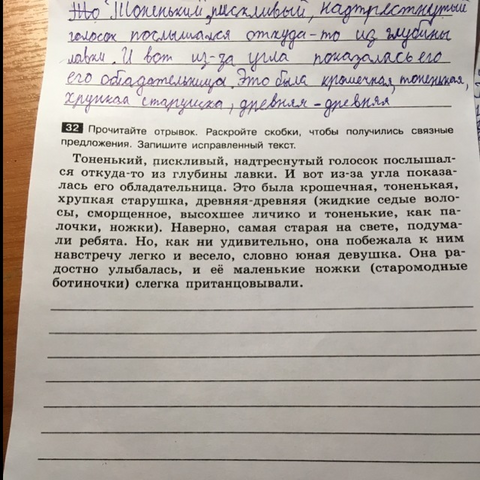 Тоненький, пискливый, надтреснутый
голосок послышался откуда-то из глубины
лавки. И вот из-за угла показалась его
его обладательница. Это была крошечная, тоненькая,
хрупкая старушка, древняя-древняя
32 Прочитайте отрывок. Раскройте скобки, чтобы получились связные
предложения. Запишите исправленный текст.
Тоненький, пискливый, надтреснутый голосок послышал-
ся откуда-то из глубины лавки. И вот из-за угла показа-
лась его обладательница. Это была крошечная, тоненькая,
хрупкая старушка, древняя-древняя (жидкие седые воло-
сы, сморщенное, высохшее личико и тоненькие, как па-
лочки, ножки). Наверно, самая старая на свете, подума-
ли ребята. Но, как ни удивительно, она побежала к ним
навстречу легко и весело, словно юная девушка. Она ра-
достно улыбалась, и её маленькие ножки (старомодные
ботиночки) слегка пританцовывали.